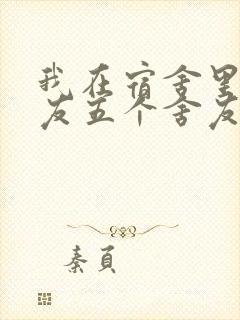 我在宿舍里
友五个舍友
秦頁